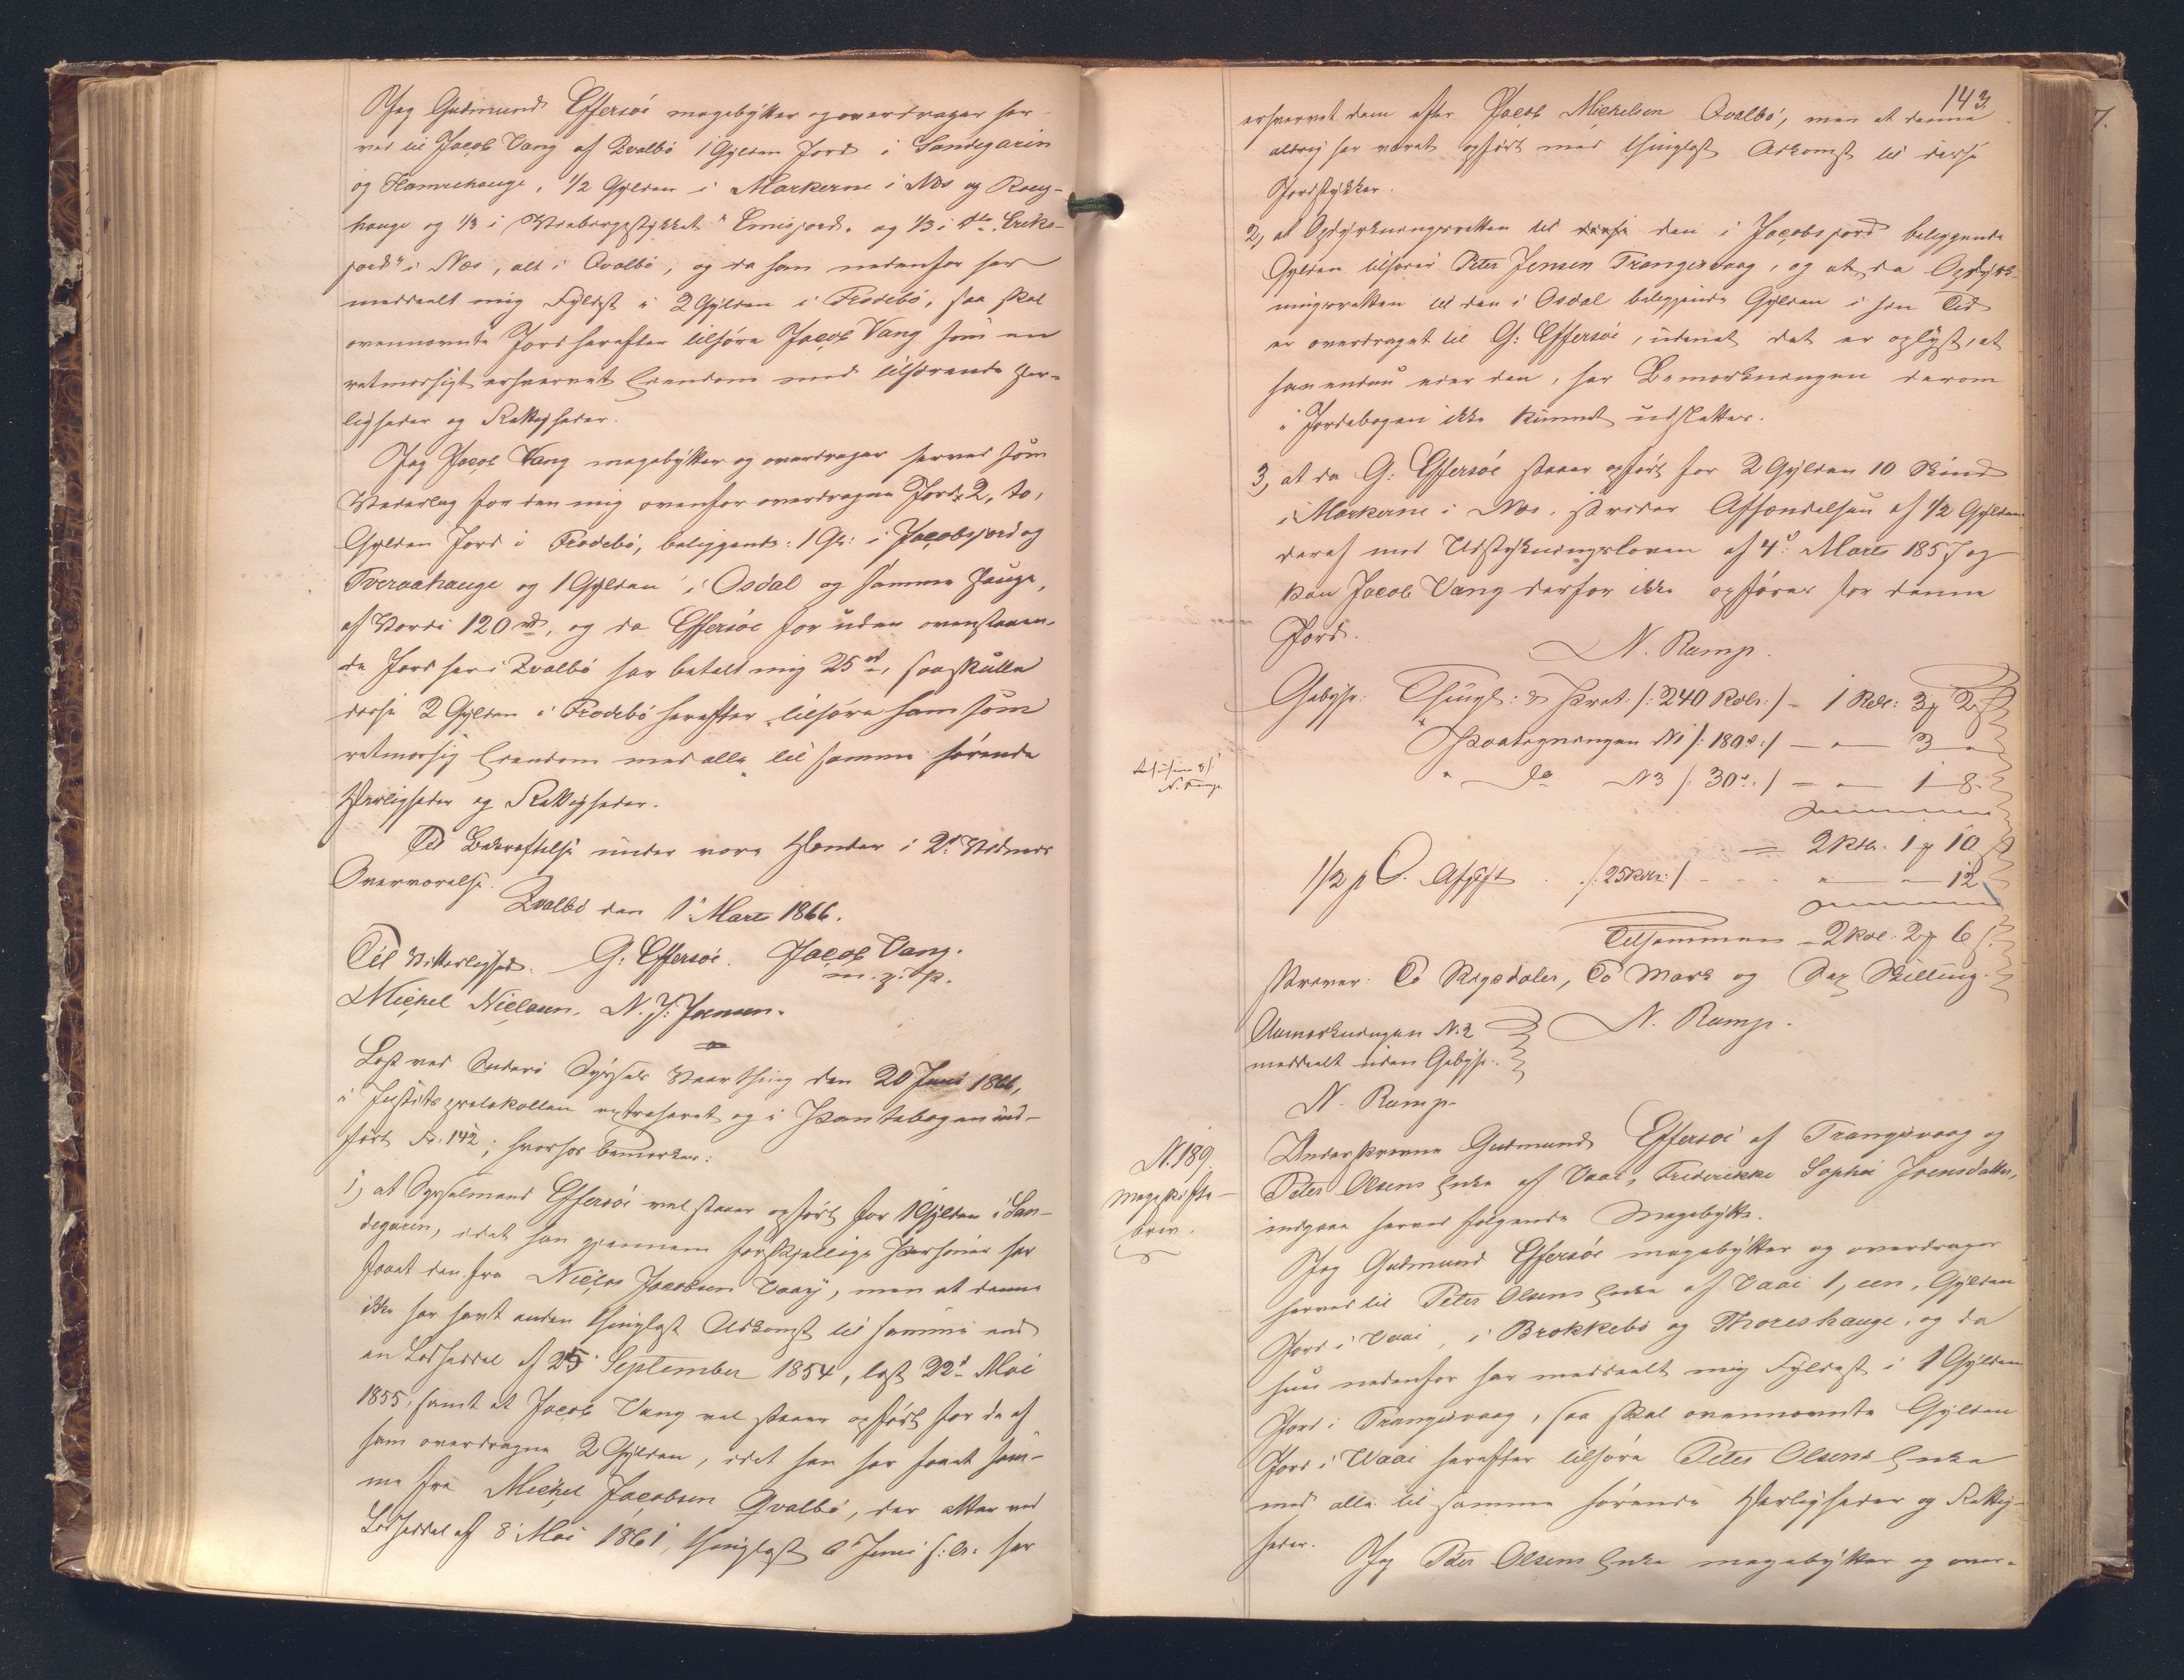 Jeg Gudmund Effersöe magebytter og overdrager her-
ved til Jacob Vang af Qvalbö 1 Gylden Jord i Sandegarin
og Hamrehauge, 1/2 Gylden i Markerne i Næs og Roeg-
hauge og 1/3 i Vraabergstykket "Emisjord" og 1/3 i do "Eriks-
jord" i Næs, alt i Qvalbö, og da han nedenfor har
meddeelt mig Fyldest i 2 Gylden i Frodebö, saa skal
ovennævnte Jord herefter tilhöre Jacob Vang som en
retmæssigt erhvervet Eiendom med tilhörende Her-
ligheder og Rettigheder.
Jeg Jacob Vang magebytter og overdrager herved som
Vederlag for den mig ovenfor overdragne Jord 2, to,
Gylden Jord i Frodebö, beliggende: 1 Gl: i Jacobsjord og
Tveraahauge og 1 Gylden i Osdal og samme Hauge,
af Værdi 120 rd, og da Effersöe foruden ovenstaaen-
de Jord her i Qvalbö har betalt mig 25 rd, saa skulle
disse 2 Gylden i Frodebö herefter tilhöre ham som
retmæssig Eiendom med alle til samme hörende
Herligheder og Rettigheder.
Til Bekræftelse under vore Hænder i 2de Vidners
Overværelse.
Qvalbö den 1ste Marts 1866.
Til Vitterlighed. G. Effersöe. Jacob Vang.
m. p. P.
Michel Nielsen. N. J. Joensen.
Læst ved Suderö Syssels Vaarthing den 20 Juni 1866,
i Justitsprotokollen extraheret og i Pantebogen ind-
fört Fo: 142; hvorhos bemærkes:
1, at Sysselmand Effersöe vel staaer opfört for 1 Gylden i San-
degarin, idet han gjennem forskjellige Personer har
faaet den fra Niclas Jacobsen Vaag, men at denne
ikke har havt anden thinglæst Adkomst til samme end
en Lodseddel af 25 September 1854, læst 22d Mai
1855, samt at Jacob Vang vel staaer opfört for de af
ham overdragne 2 Gylden, idet han har faaet sam-
me fra Michel Jacobsen Qvalbö, der atter ved
Lodseddel af 8 Mai 1861, thinglæst 6 Juni s: A: har
143.
erhvervet dem efter Jacob Michelsen Qvalbö, men at denne
aldrig har været opfört med thinglæst Adkomst til disse
Jordstykker.
2, at Opdyrkningsretten til disse den i Jacobsjord beliggende
Gylden tilhörer Peter Jensen Trangisvaag, og at da Opdyrk-
ningsretten til den i Osdal beliggende Gylden i sin Tid
er overdraget til G: Effersöe, uden at det er oplyst, at
han endnu eier den, har Bemærkningen derom
i Jordebogen ikke kunnet udslettes.
3, at da G: Effersöe staaer opfört for 2 Gylden 10 Skind
i Markerne i Næs, strider Afhændelsen af 1/2 Gylden
deraf mod Udstykningsloven af 4de Marts 1857 og
kan Jacob Vang derfor ikke opföres for denne
Jord.
N. Ramp.
Gebyr: Thingl: & Skret: /: 240 Rdlr: / - 1 Rdl: 3 ¥ 2 ß
" Paategningen N 1 /: 180 rd: / — " — 3 "
" do N 3 /: 30 rd: / — " — 1 - 8.
= 2 Rdlr. 1 ¥ 10 ß
1/2 p C. Afgift /: 25 Rdlr: / - - - " — 12
Tilsammen - 2 Rdl. 2 ¥ 6 ß.
skriver: To Rigsdaler, To Mark og Sex Skilling.
Anmærkningen N. 2
meddeelt uden Gebyr.
N. Ramp.
N. Ramp
N. 189
Mageskifte-
brev.
Underskrevne Gudmund Effersöe af Trangisvaag og
Peter Olsens Enke af Vaai, Frederikke Sophie Joensdatter,
indgaae herved fölgende Magebytte.
Jeg Gudmund Effersöe magebytter og overdrager
herved til Peter Olsens Enke af Vaai 1, een, Gylden
Jord i Vaai, i Brokkebö og Thoreshauge, og da
hun nedenfor har meddeelt mig Fyldest i 1 Gylden
Jord i Trangisvaag, saa skal ovennævnte Gylden
Jord i Waai herefter tilhöre Peter Olsens Enke
med alle til samme hörende Herligheder og Rettig-
heder.
Jeg Peter Olsens Enke magebytter og over-